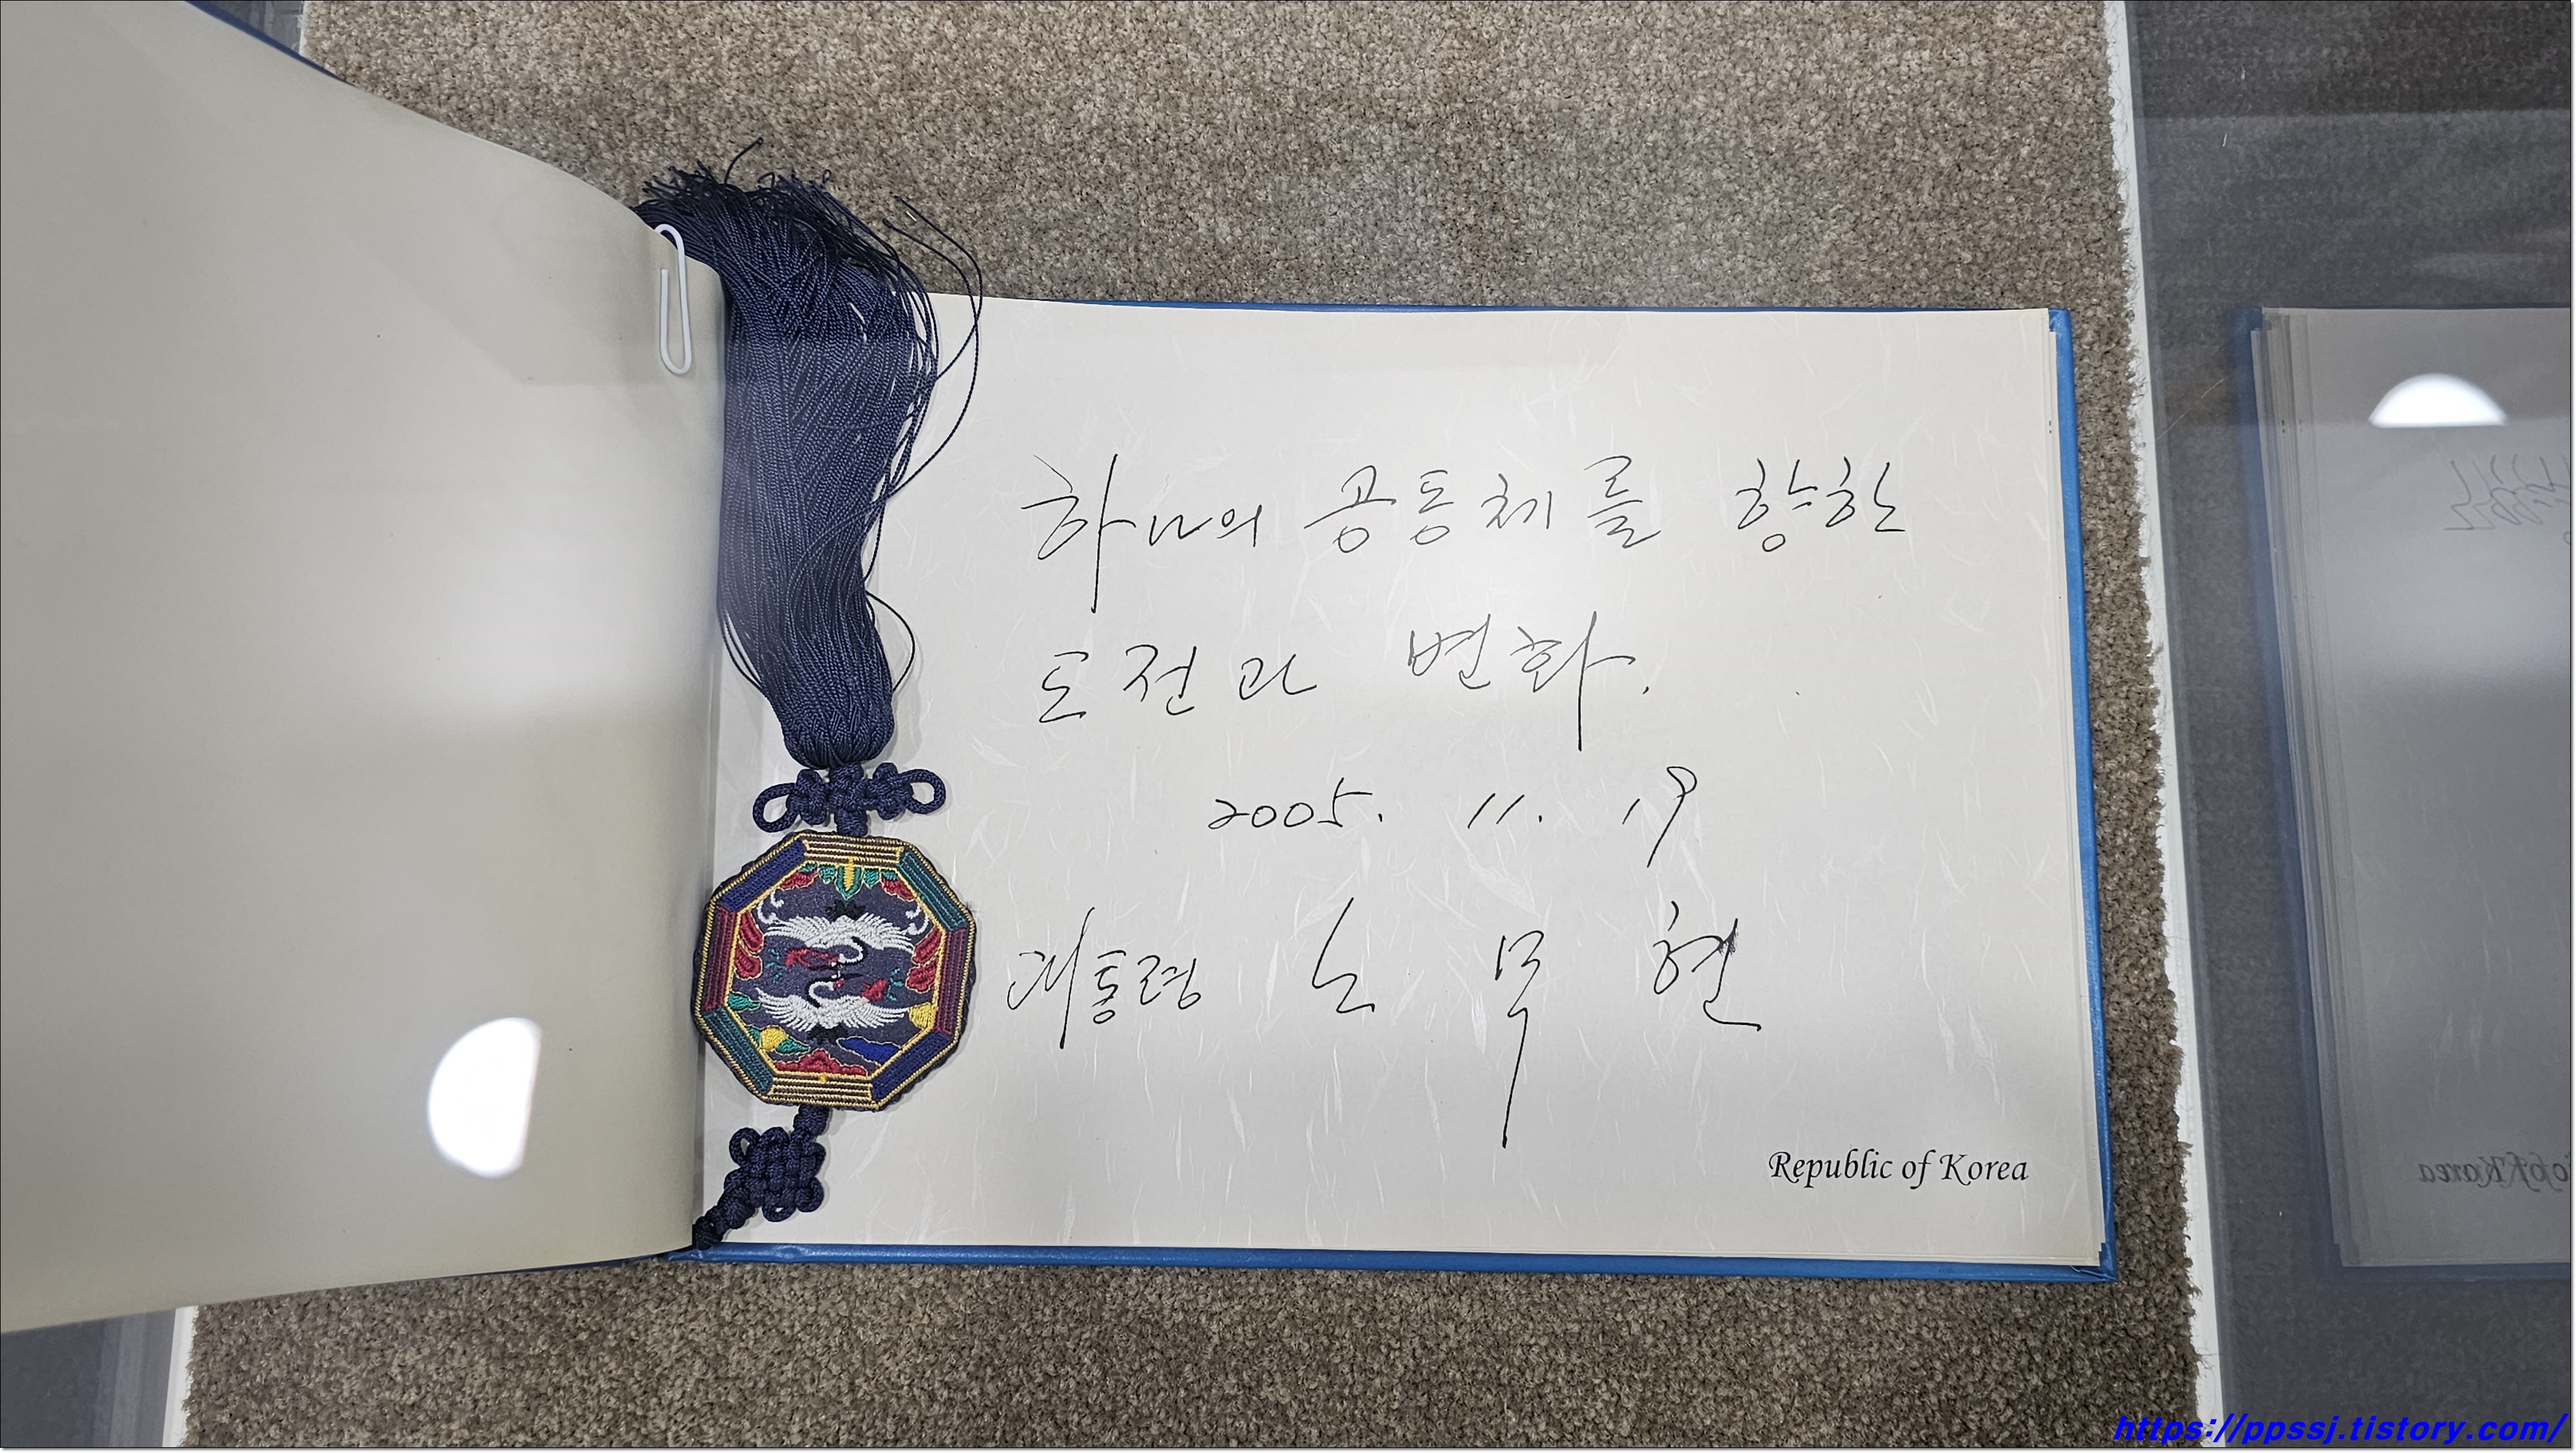 하나의 공동체를 향한
도전과 변화.
2005. 11. 19
대통령 노 무 현
Republic of Korea
https://ppssj.tistory.com/